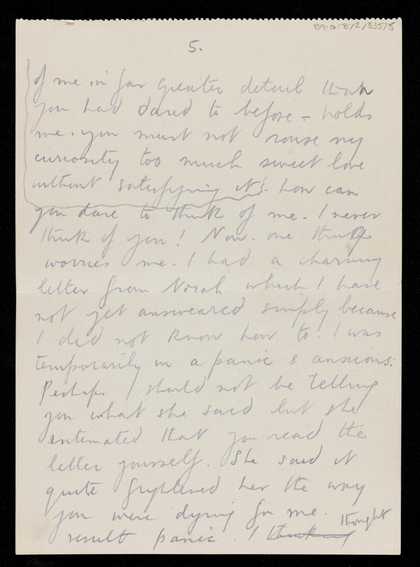 5.
of me in far greater detail than
you had dared to before - holds
me. you must not rouse my
curiosity too much sweet love
without satisfying it! how can
you dare to think of me. I never
think of you! Now. one thing
worries me. I had a charming
letter from Norah which I have
not yet answeared simply because
I did not know how to. I was
temporarily in a panic & anxious.
Perhaps I should not be telling
you what she said but she
entimated that you read the
letter yourself. She said it
quite frightened her the way
you were dying for me.
result panic. I thought